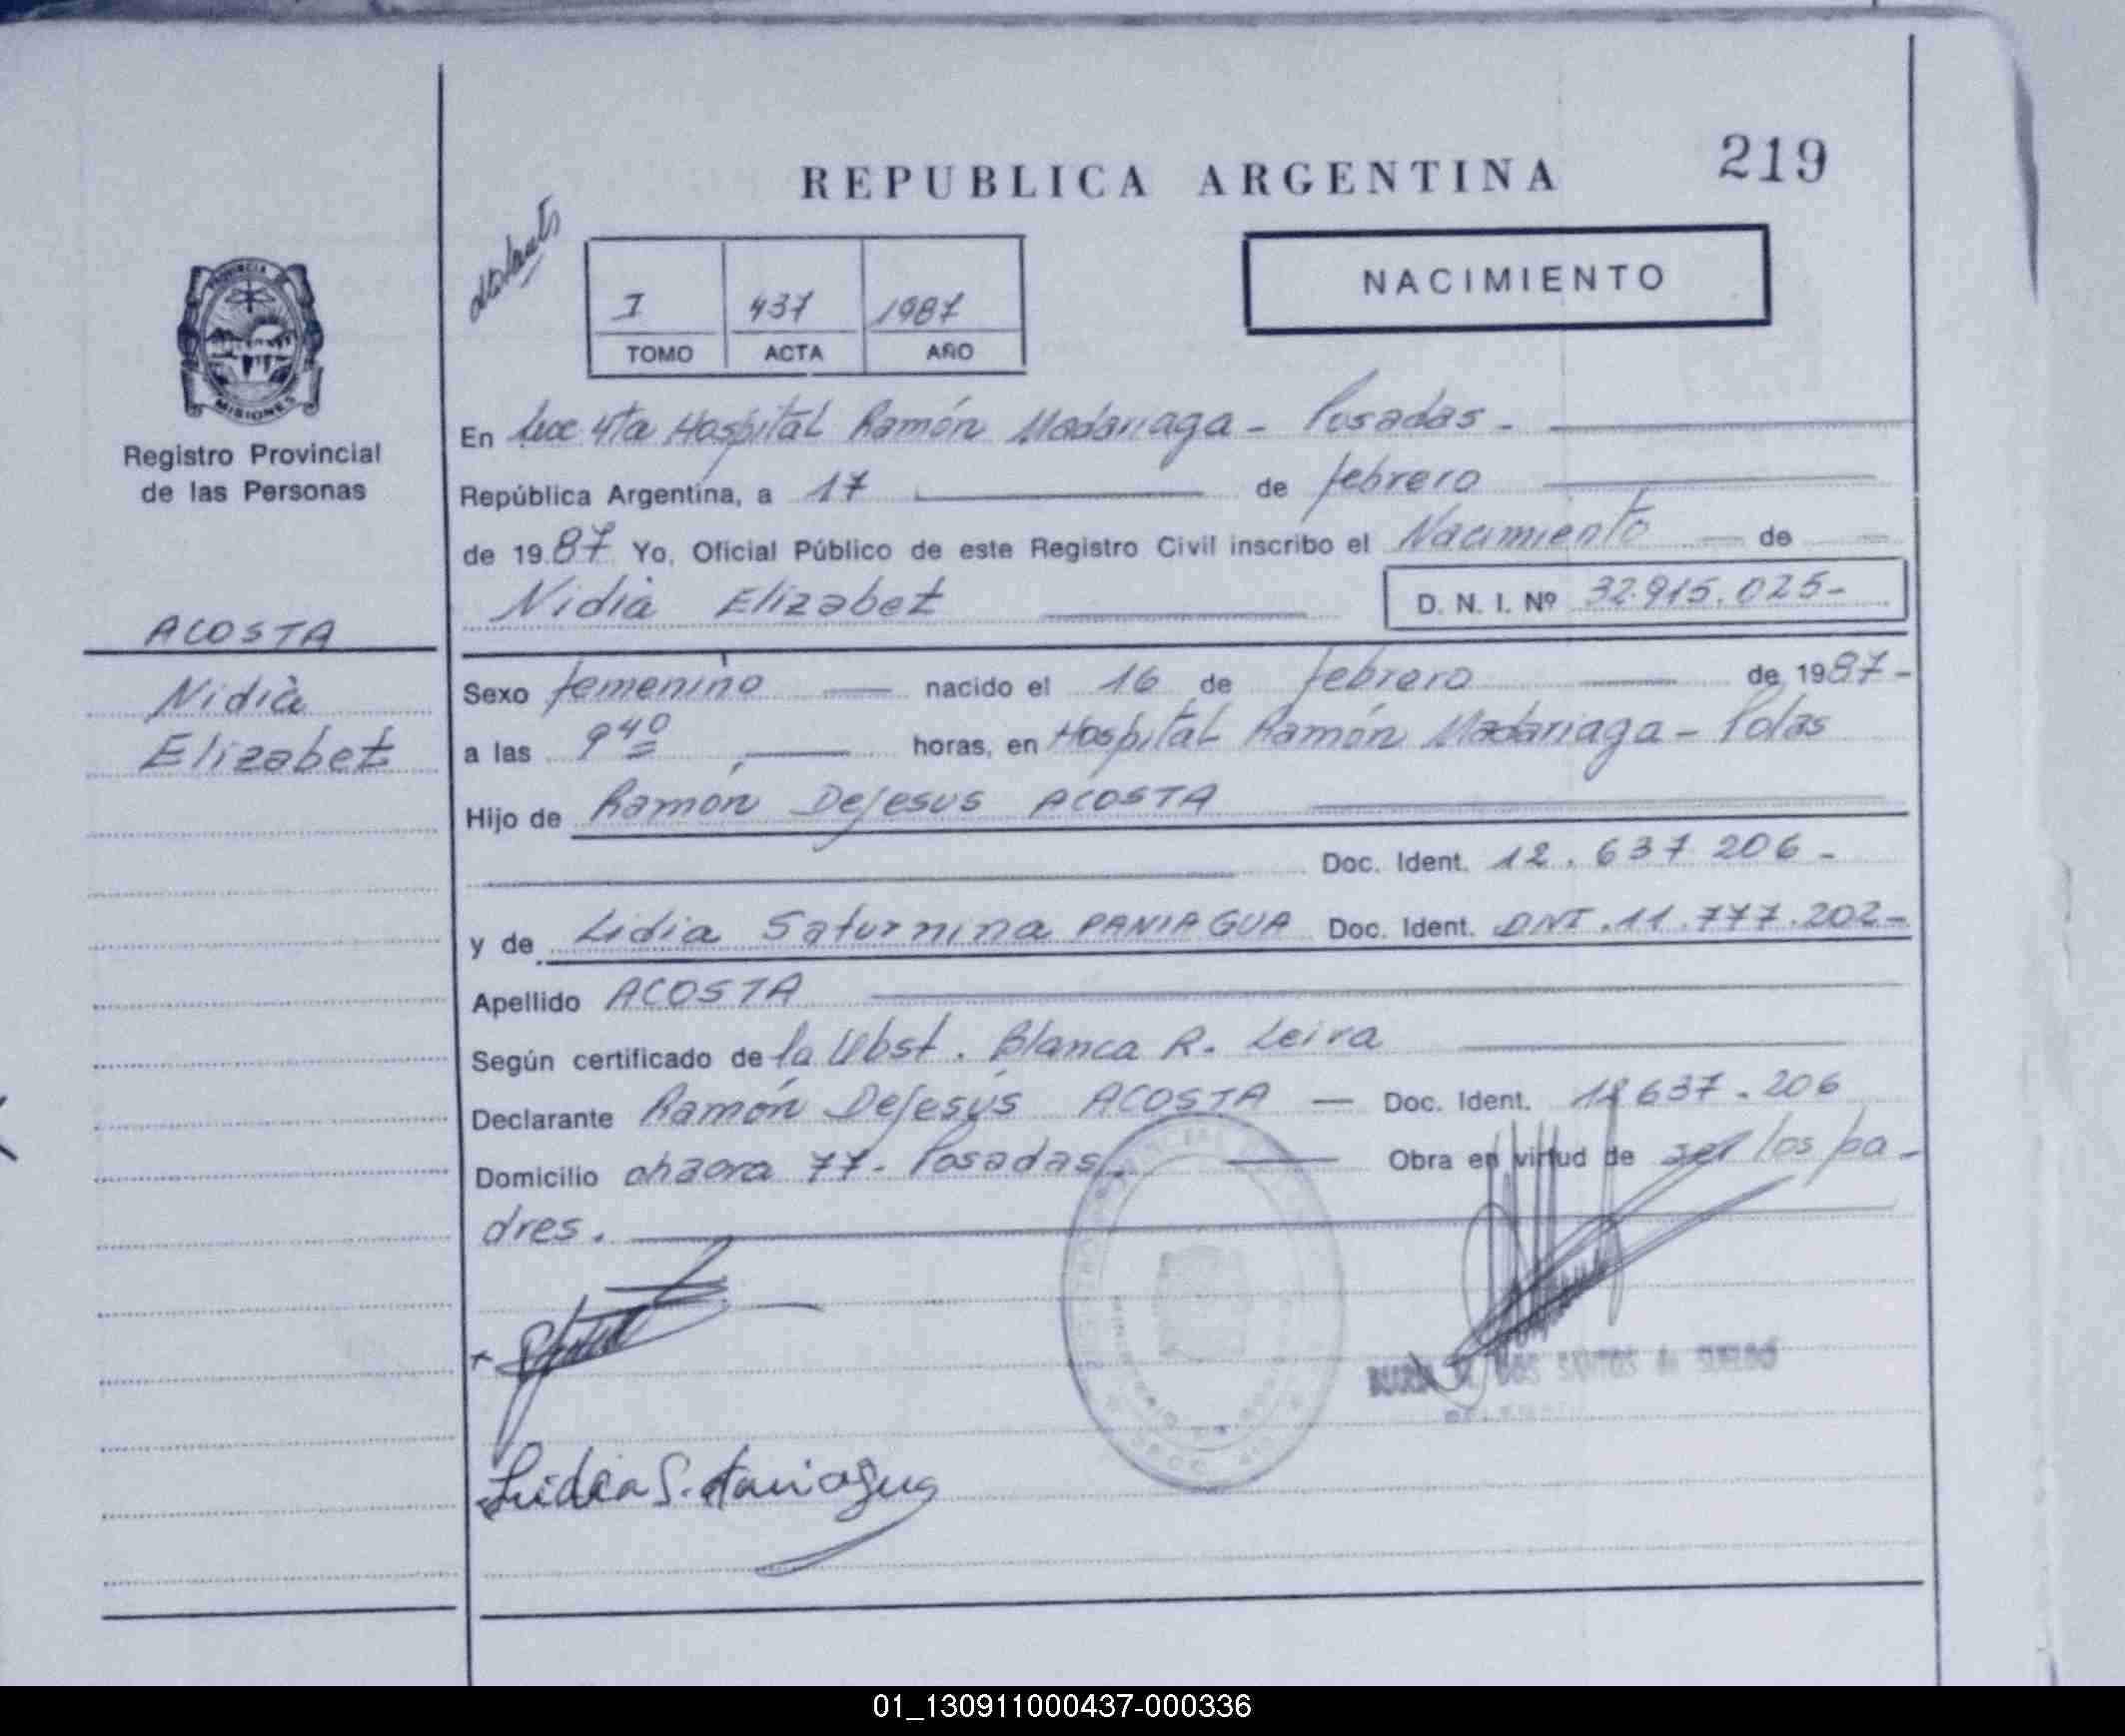 REPUBLICA ARGENTINA
219
NACIMIENTO
I 437 1987
TOMO ACTA AÑO
PROVINCIA
MISIONES
Registro Provincial
de las Personas
ACOSTA
Nidia
Elizabet
En Secc 4ta Hospital Ramón Madariaga - Posadas -
República Argentina, a 17 de febrero
de 1987 Yo, Oficial Público de este Registro Civil inscribo el Nacimiento de
Nidia Elizabet D. N. I. Nº 32.915.025-
Sexo femenino nacido el 16 de febrero de 1987-
a las 9 40 horas, en Hospital Ramón Madariaga - Pdas
Hijo de Ramón Dejesus ACOSTA
Doc. Ident. 12.637 206 -
y de Lidia Saturnina PANIAGUA Doc. Ident. DNI.11.777.202-
Apellido ACOSTA
Según certificado de la Obst. Blanca R. Leiva
Declarante Ramón Dejesús ACOSTA — Doc. Ident. 12637.206
Domicilio chacra 77- Posadas. Obra en virtud de ser los pa-
dres.
DOS SANTOS de SUELDO
Lidia S. Paniagua
01_130911000437-000336